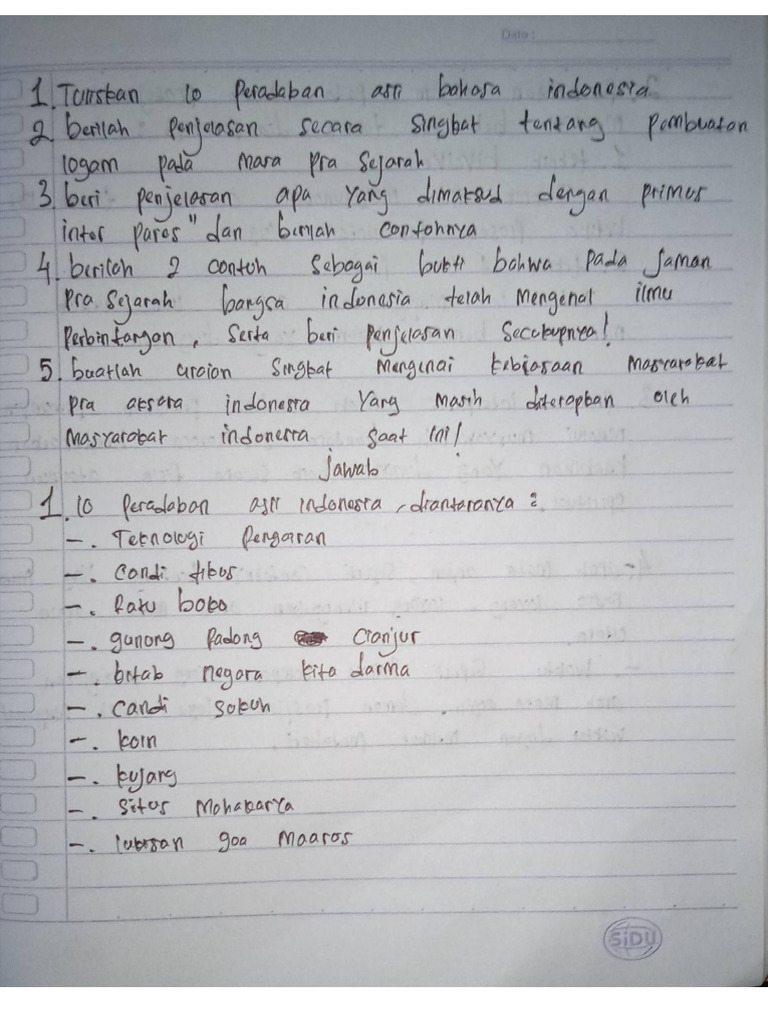 Date :
1. Tuliskan 10 Peradaban asli bahasa indonesia
2 berilah penjelasan secara singkat tentang pembuatan
logam pada masa pra sejarah
3. beri penjelasan apa yang dimaksud dengan primus
inter pares" dan berilah contohnya
4. berilah 2 contoh sebagai bukti bahwa pada jaman
pra sejarah bangsa indonesia telah mengenal ilmu
perbintangan, serta beri penjelasan secukupnya!
5. buatlah uraian singkat mengenai kebiasaan masyarakat
pra aksara indonesia yang masih diterapkan oleh
masyarakat indonesia saat ini!
jawab
1. 10 peradaban asli indonesia, diantaranya :
-. Teknologi Pengairan
-. Candi tikus
-. Ratu boko
-. gunung Padang Cianjur
-. kitab negara kita darma
-. Candi sukuh
-. koin
-. kujang
-. Situs Mahakarya
-. lukisan goa Maaros
SiDU